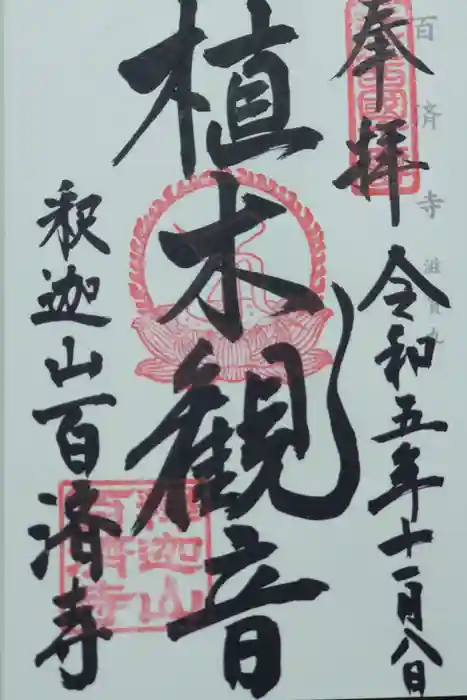 百済寺
奉拝
令和五年十一月八日
植木観音
釈迦山百済寺
釈迦山
百済寺